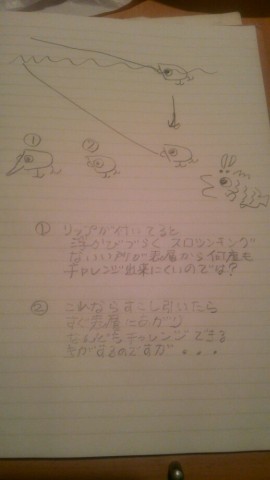 ①
②
① リップが付いてると
浮かびづらく スロツンキング
ないい所が表層から何度も
チャレンジ出来にくいのでは?
② これならすこし引いたら
すぐ表層に上がり
なんどもチャレンジできる
気がするのですが...